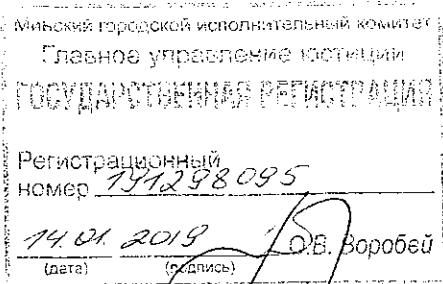 Минский городской исполнительный комитет
Главное управление юстиции
ГОСУДАРСТВЕННАЯ РЕГИСТРАЦИЯ
Регистрационный
номер 191298095
14.01. 2019 О.В. Воробей
(дата) (подпись)